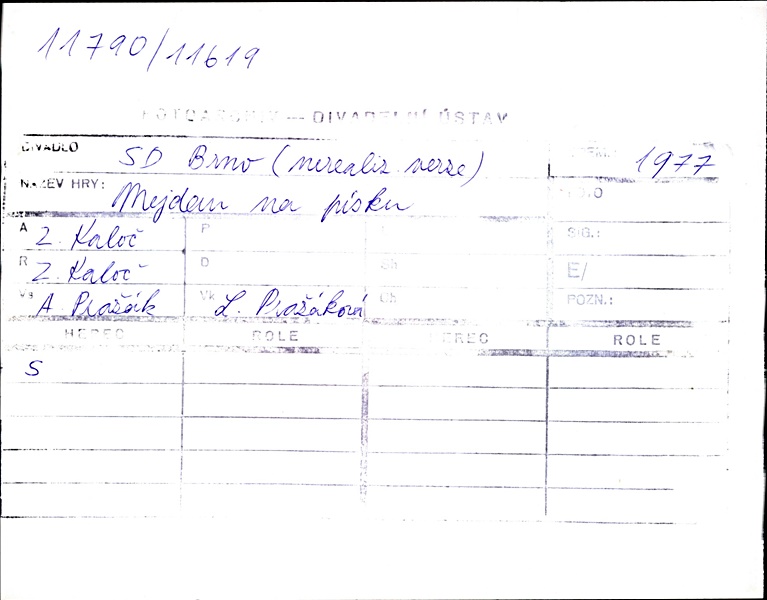 11790/11619
FOTOARCHIV — DIVADELNÍ ÚSTAV
DIVADLO SD Brno (nerealiz. verze) 1977
NÁZEV HRY: Mejdan na písku FOTO
A Z. Kaloč P SIG.:
R Z. Kaloč D Sh E/
Vs A Pražák Vk L. Pražáková Ch POZN.:
HEREC ROLE HEREC ROLE
S